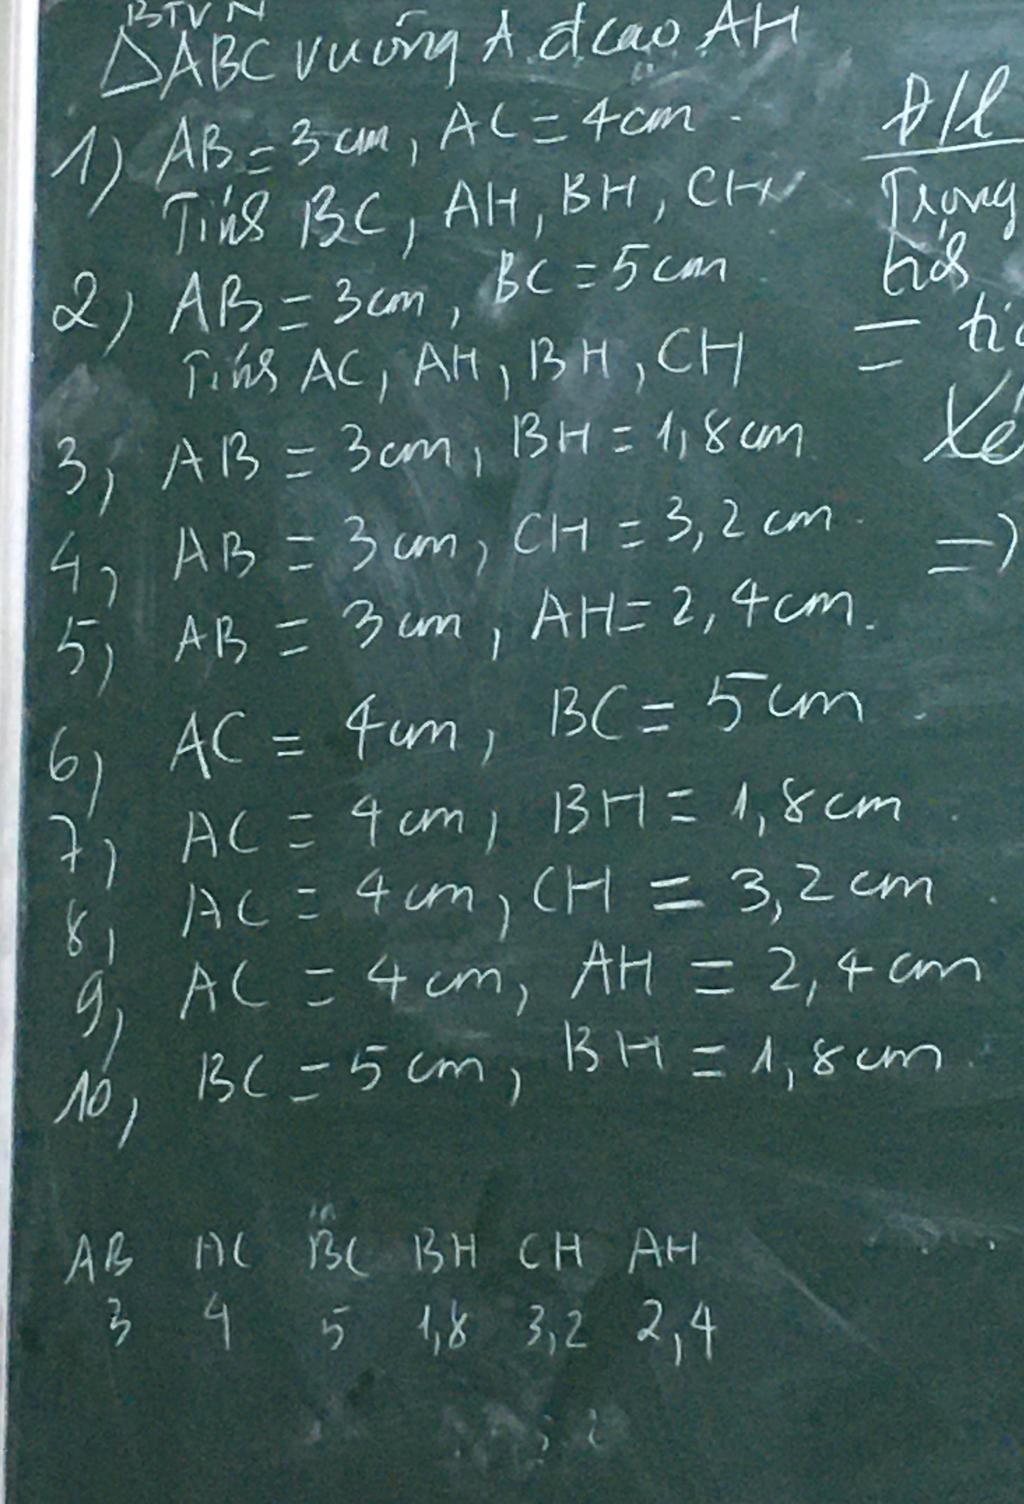 BTVN
△ABC vuông A đcao AH
1) AB = 3cm, AC = 4cm
Tính BC, AH, BH, CH
2) AB = 3cm, BC = 5cm
Tính AC, AH, BH, CH
3, AB = 3cm, BH = 1,8cm
4, AB = 3cm, CH = 3,2cm
5, AB = 3cm, AH = 2,4cm.
6, AC = 4cm, BC = 5cm
7, AC = 4cm, BH = 1,8cm
8, AC = 4cm, CH = 3,2cm
9, AC = 4cm, AH = 2,4cm
10, BC = 5cm, BH = 1,8cm
AB AC BC BH CH AH
3 4 5 1,8 3,2 2,4
Đ/l
Trong
=
=>